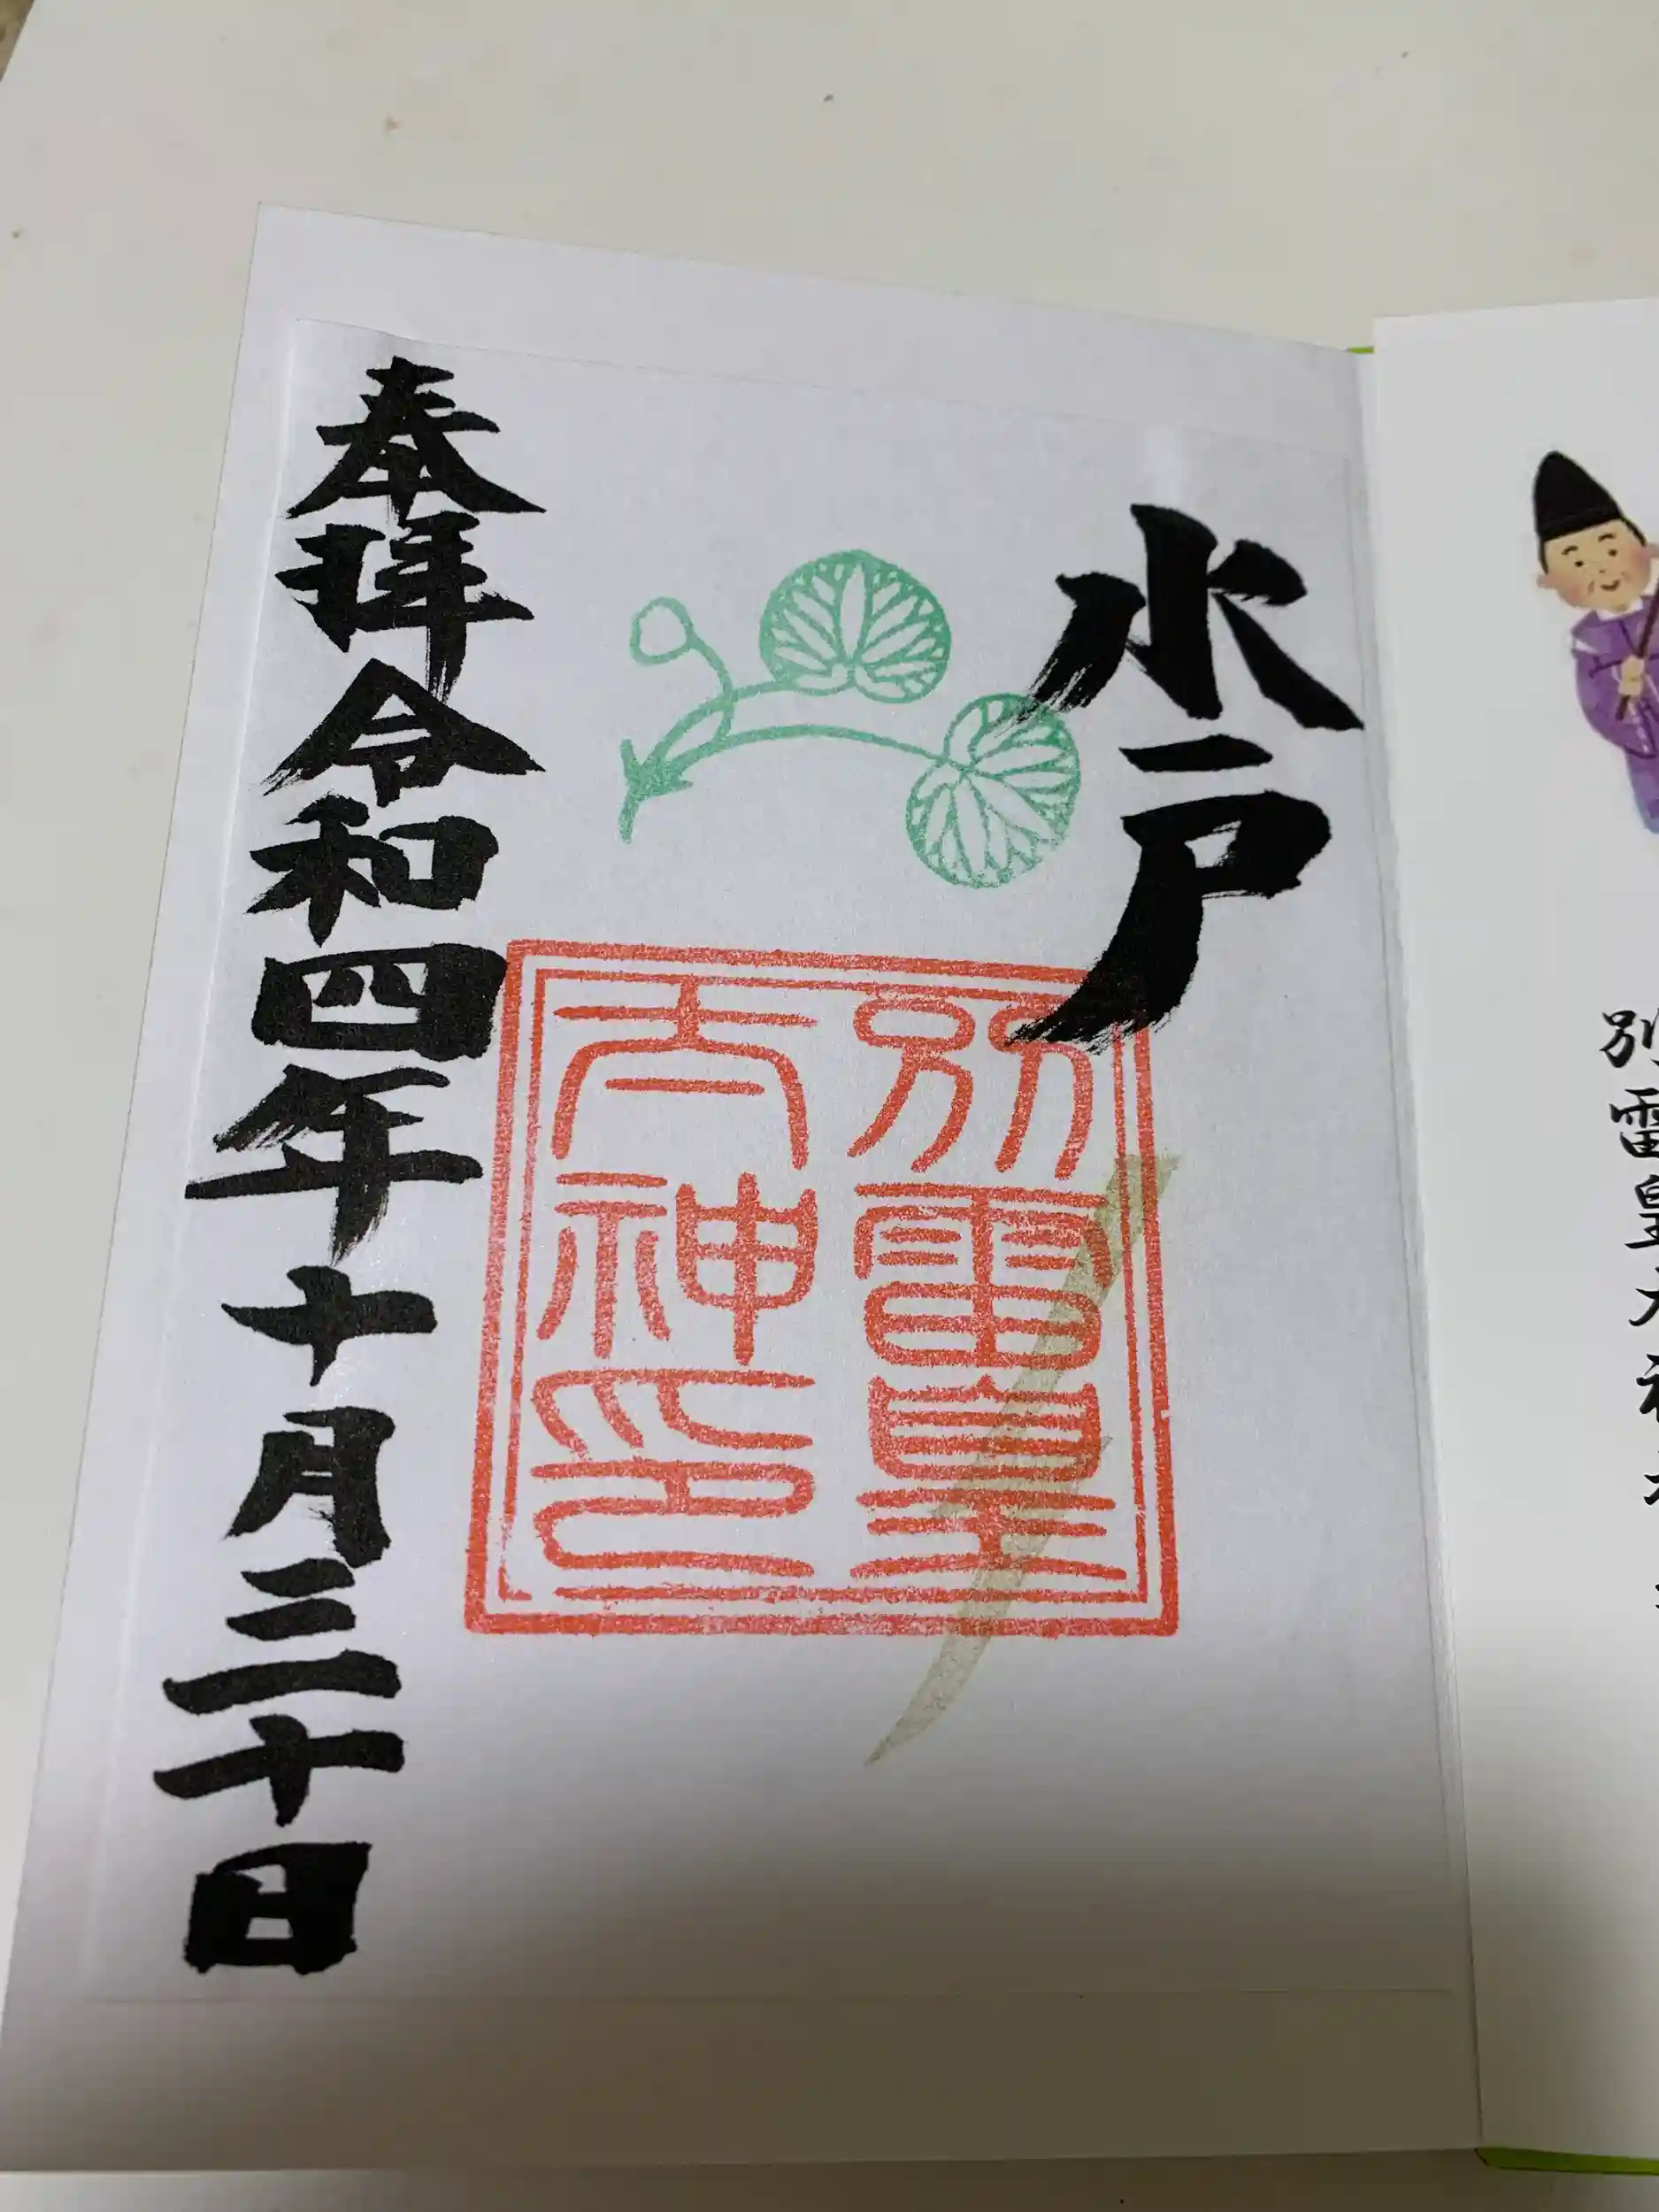 別雷皇
水戸
別雷皇
太神印
奉拝令和四年十月三十日